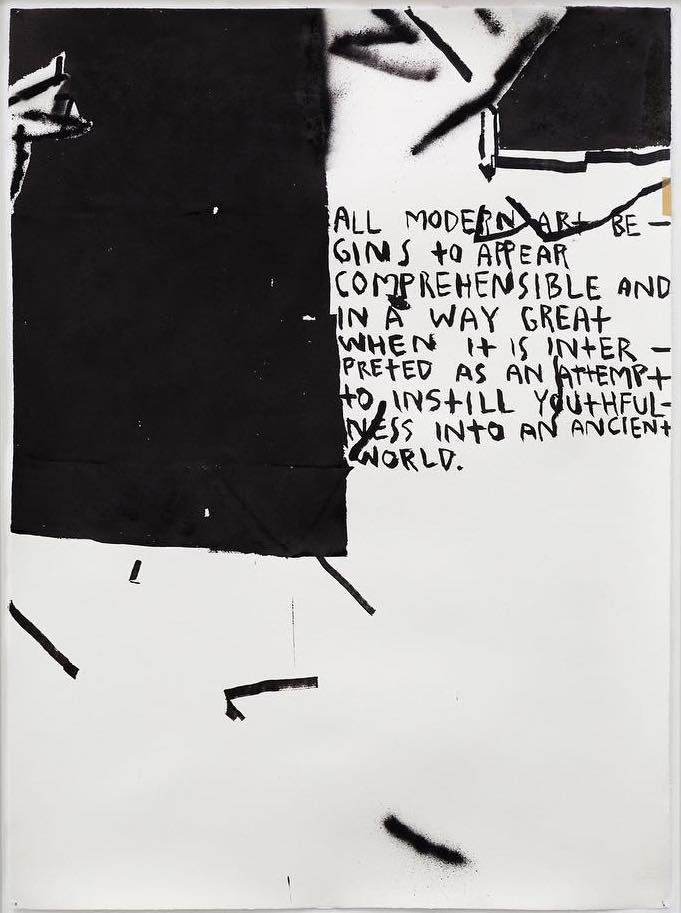 ALL MODERN ART BE-
GINS tO APPEAR
COMPREHENSIBLE AND
IN A WAY GREAt
WHEN It IS INtER-
PREtED AS AN AttEMPt
tO INStILL YOUtHFUL-
NESS INtO AN ANCIENt
WORLD.